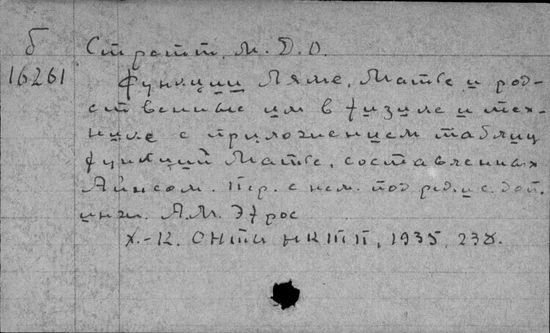 б Стретт, М. Д. О.
16261 Функции Ляме, Матье и род-
ственные им в физике и тех-
нике с приложением таблиц
функций Матье, составленных
Айнсом. Пер. с нем. под ред. и с доп.
инж. А.М. Эфрос
Х.-К. ОНТИ НКТП, 1935, 238.